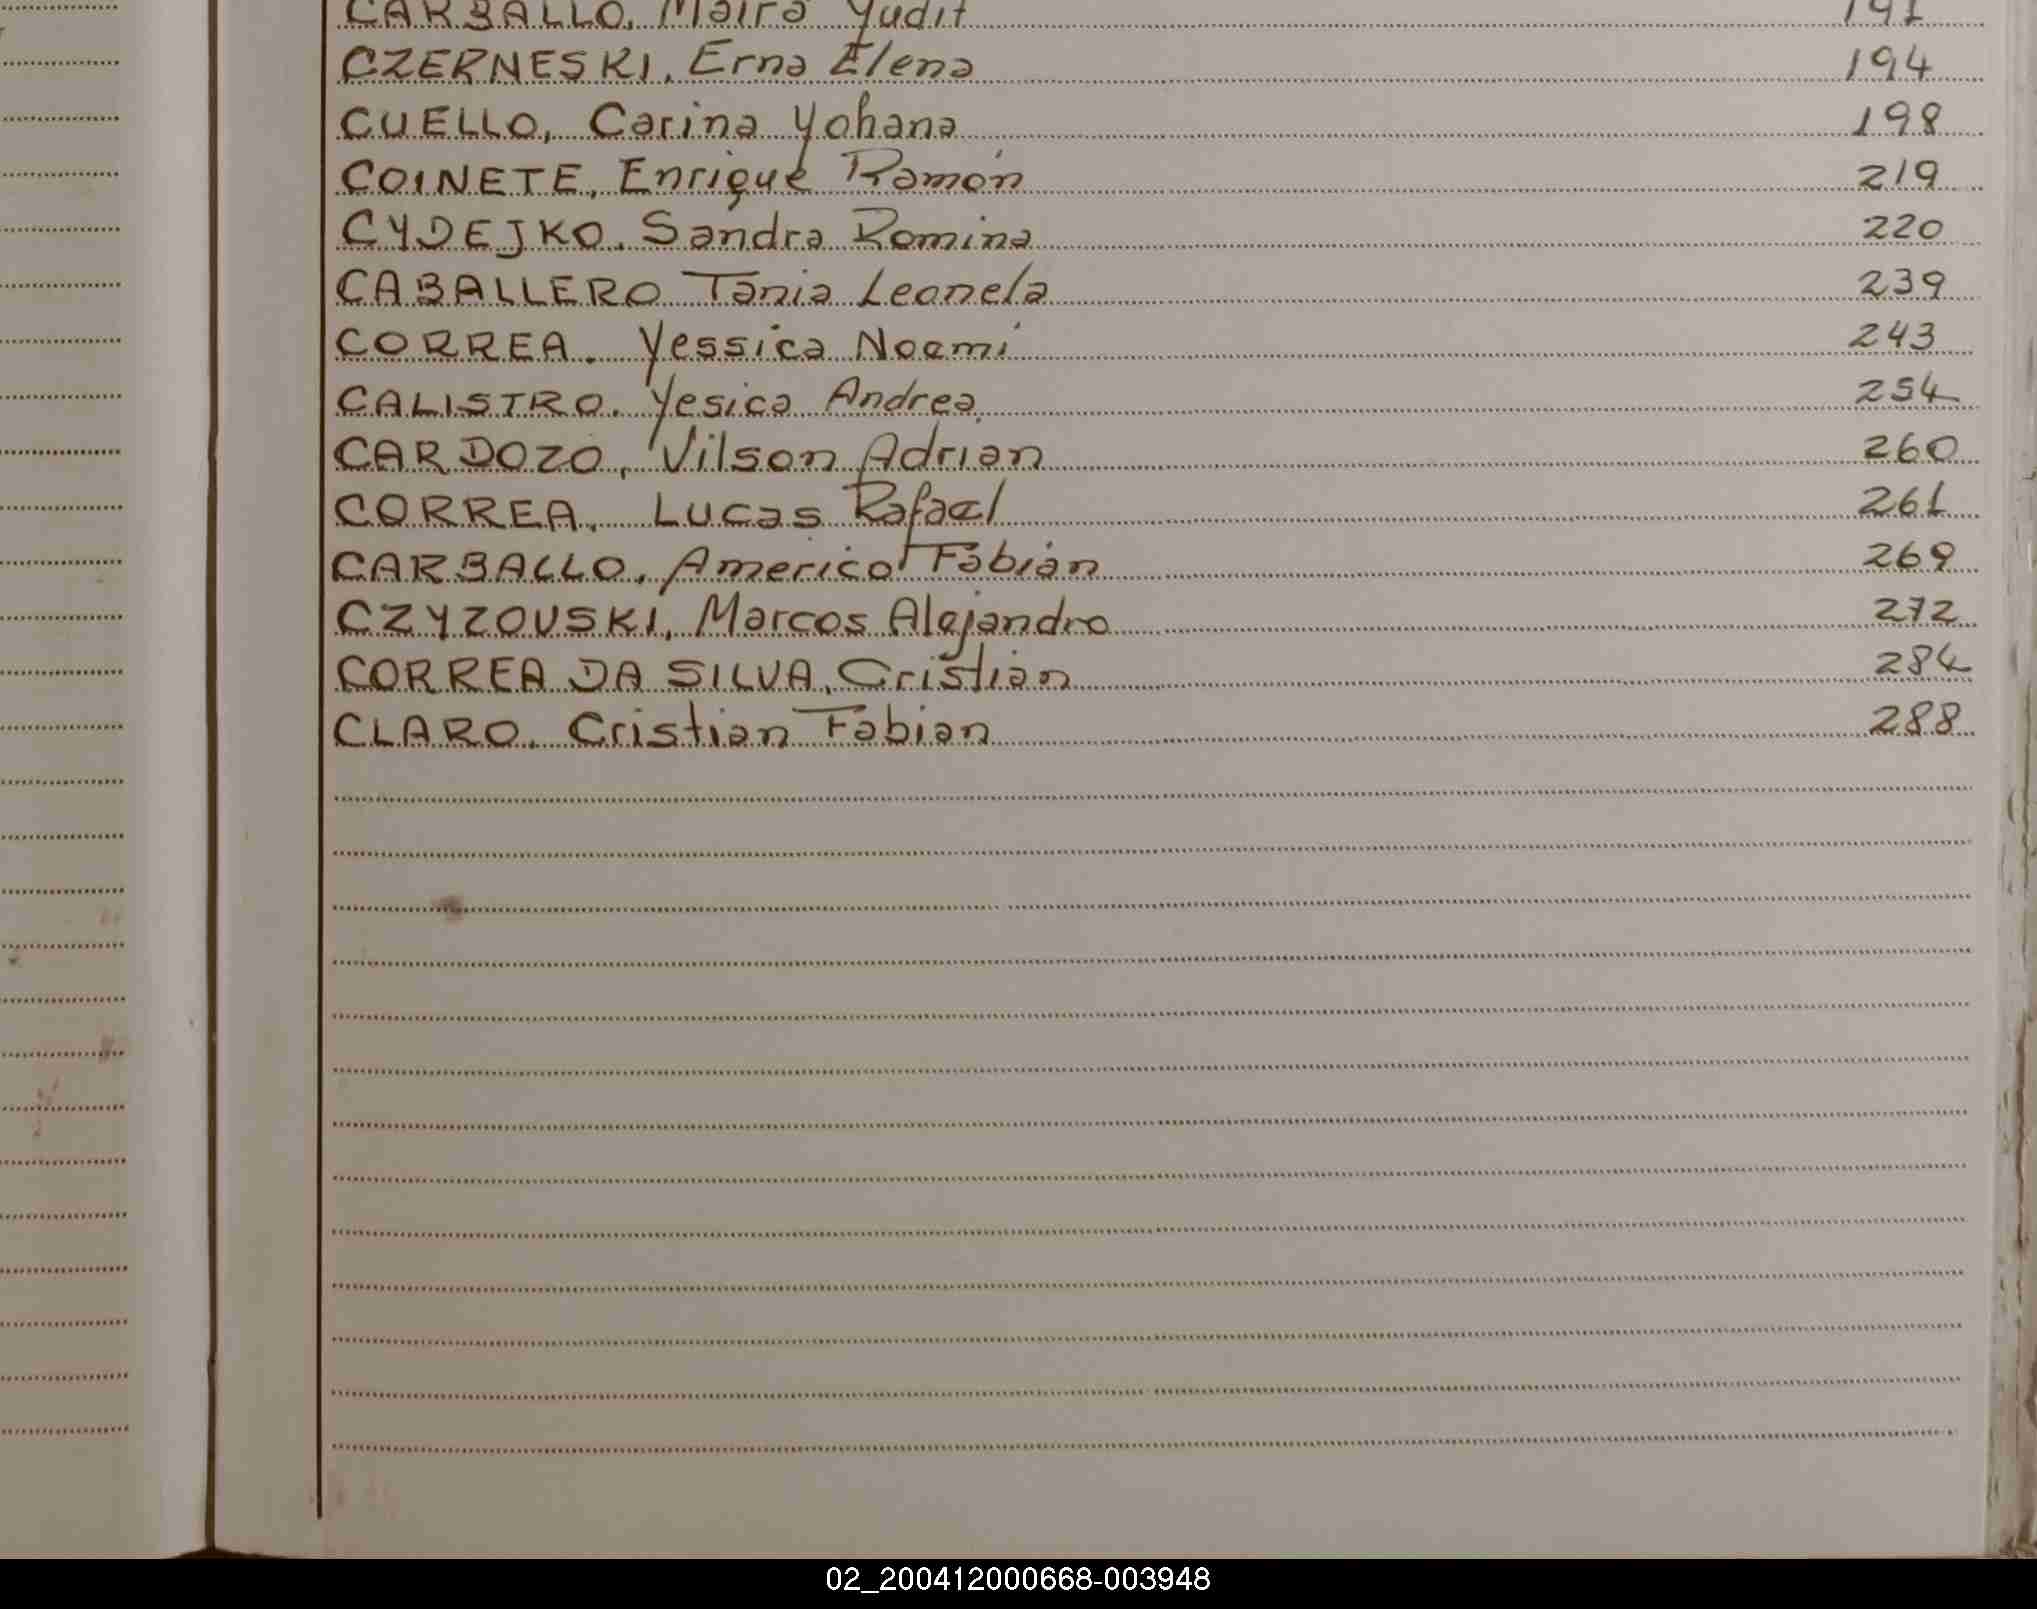 CARBALLO, Maira Yudit 191
CZERNESKI, Erna Elena 194
CUELLO, Carina Yohana 198
COINETE, Enrique Ramón 219
CYDEJKO, Sandra Romina 220
CABALLERO Tania Leonela 239
CORREA, Yessica Noemí 243
CALISTRO, Yesica Andrea 254
CARDOZO, Vilson Adrian 260
CORREA, Lucas Rafael 261
CARBALLO, Americo Fabián 269
CZYZOUSKI, Marcos Alejandro 272
CORREA DA SILVA, Cristian 284
CLARO, Cristian Fabian 288
02_200412000668-003948